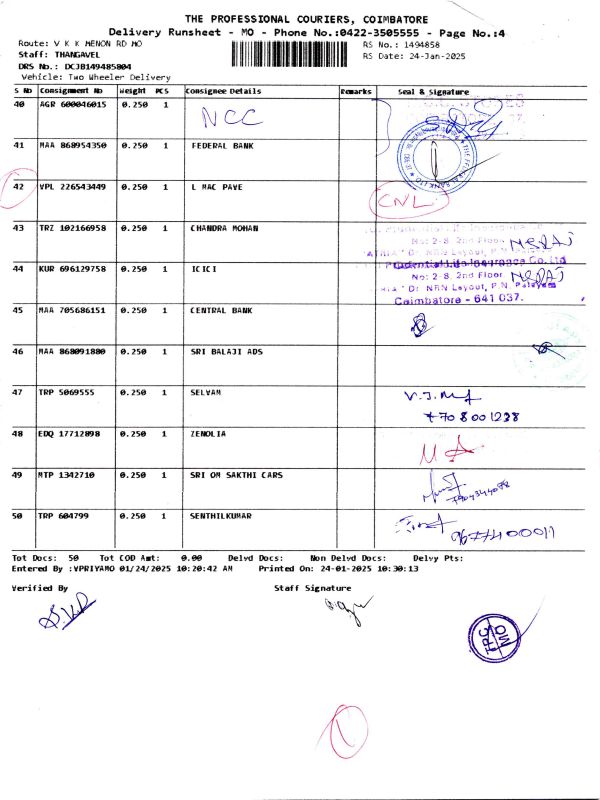 THE PROFESSIONAL COURIERS, COIMBATORE
Delivery Runsheet - MO - Phone No.:0422-3505555 - Page No.:4
Route: V K K MENON RD MO
RS No.: 1494858
Staff: THANGAVEL
RS Date: 24-Jan-2025
DRS No.: DCJB149485804
Vehicle: Two Wheeler Delivery
S No Consignment No Weight PCS Consignee Details Remarks Seal & Signature
40 AGR 600046015 0.250 1 NCC
41 MAA 868954350 0.250 1 FEDERAL BANK
42 VPL 226543449 0.250 1 L MAC PAVE CNL
43 TRZ 102166958 0.250 1 CHANDRA MOHAN
No: 2-8, 2nd Floor
44 KUR 696129758 0.250 1 ICICI
Prudential Life Insurance Co. Ltd
No: 2-8, 2nd Floor
Dr. NRN Layout, P.N. Palayam
Coimbatore - 641 037.
45 MAA 705686151 0.250 1 CENTRAL BANK
46 MAA 868091880 0.250 1 SRI BALAJI ADS
47 TRP 5069555 0.250 1 SELVAM
48 EDQ 17712898 0.250 1 ZENOLIA
49 MTP 1342710 0.250 1 SRI OM SAKTHI CARS
50 TRP 604799 0.250 1 SENTHILKUMAR
Tot Docs: 50 Tot COD Amt: 0.00 Delvd Docs: Non Delvd Docs: Delvy Pts:
Entered By :VPRIYAMO 01/24/2025 10:20:42 AM Printed On: 24-01-2025 10:30:13
Verified By Staff Signature
TPC
MO
1